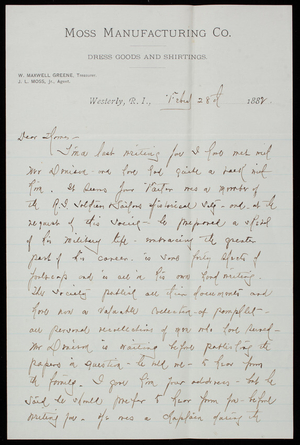 MOSS MANUFACTURING CO.
DRESS GOODS AND SHIRTINGS.
W. MAXWELL GREENE, Treasurer.
J. L. MOSS, Jr., Agent.
Westerly, R. I., Feby 28th 1882.
Dear Thomas -
Since last writing you I have met
Mr Denison and we have had quite a
him. It seems your Father was a member of
the R.I. Soldiers & Sailors Historical Socty - and at the
request of this Society - he prepared a sketch
of his military life - embracing the greater
part of his career. in some forty sheets of
foolscap and is all in his own hand writing.
The Society publish all their documents and
have now a valuable collection of pamphlets -
all personal recollections of men who have served -
Mr Denison is waiting before publishing the
papers in question - he told me - to hear from
the family. I gave him your address - but he
said he should prefer to hear from you before
writing you - He was a Chaplain during the